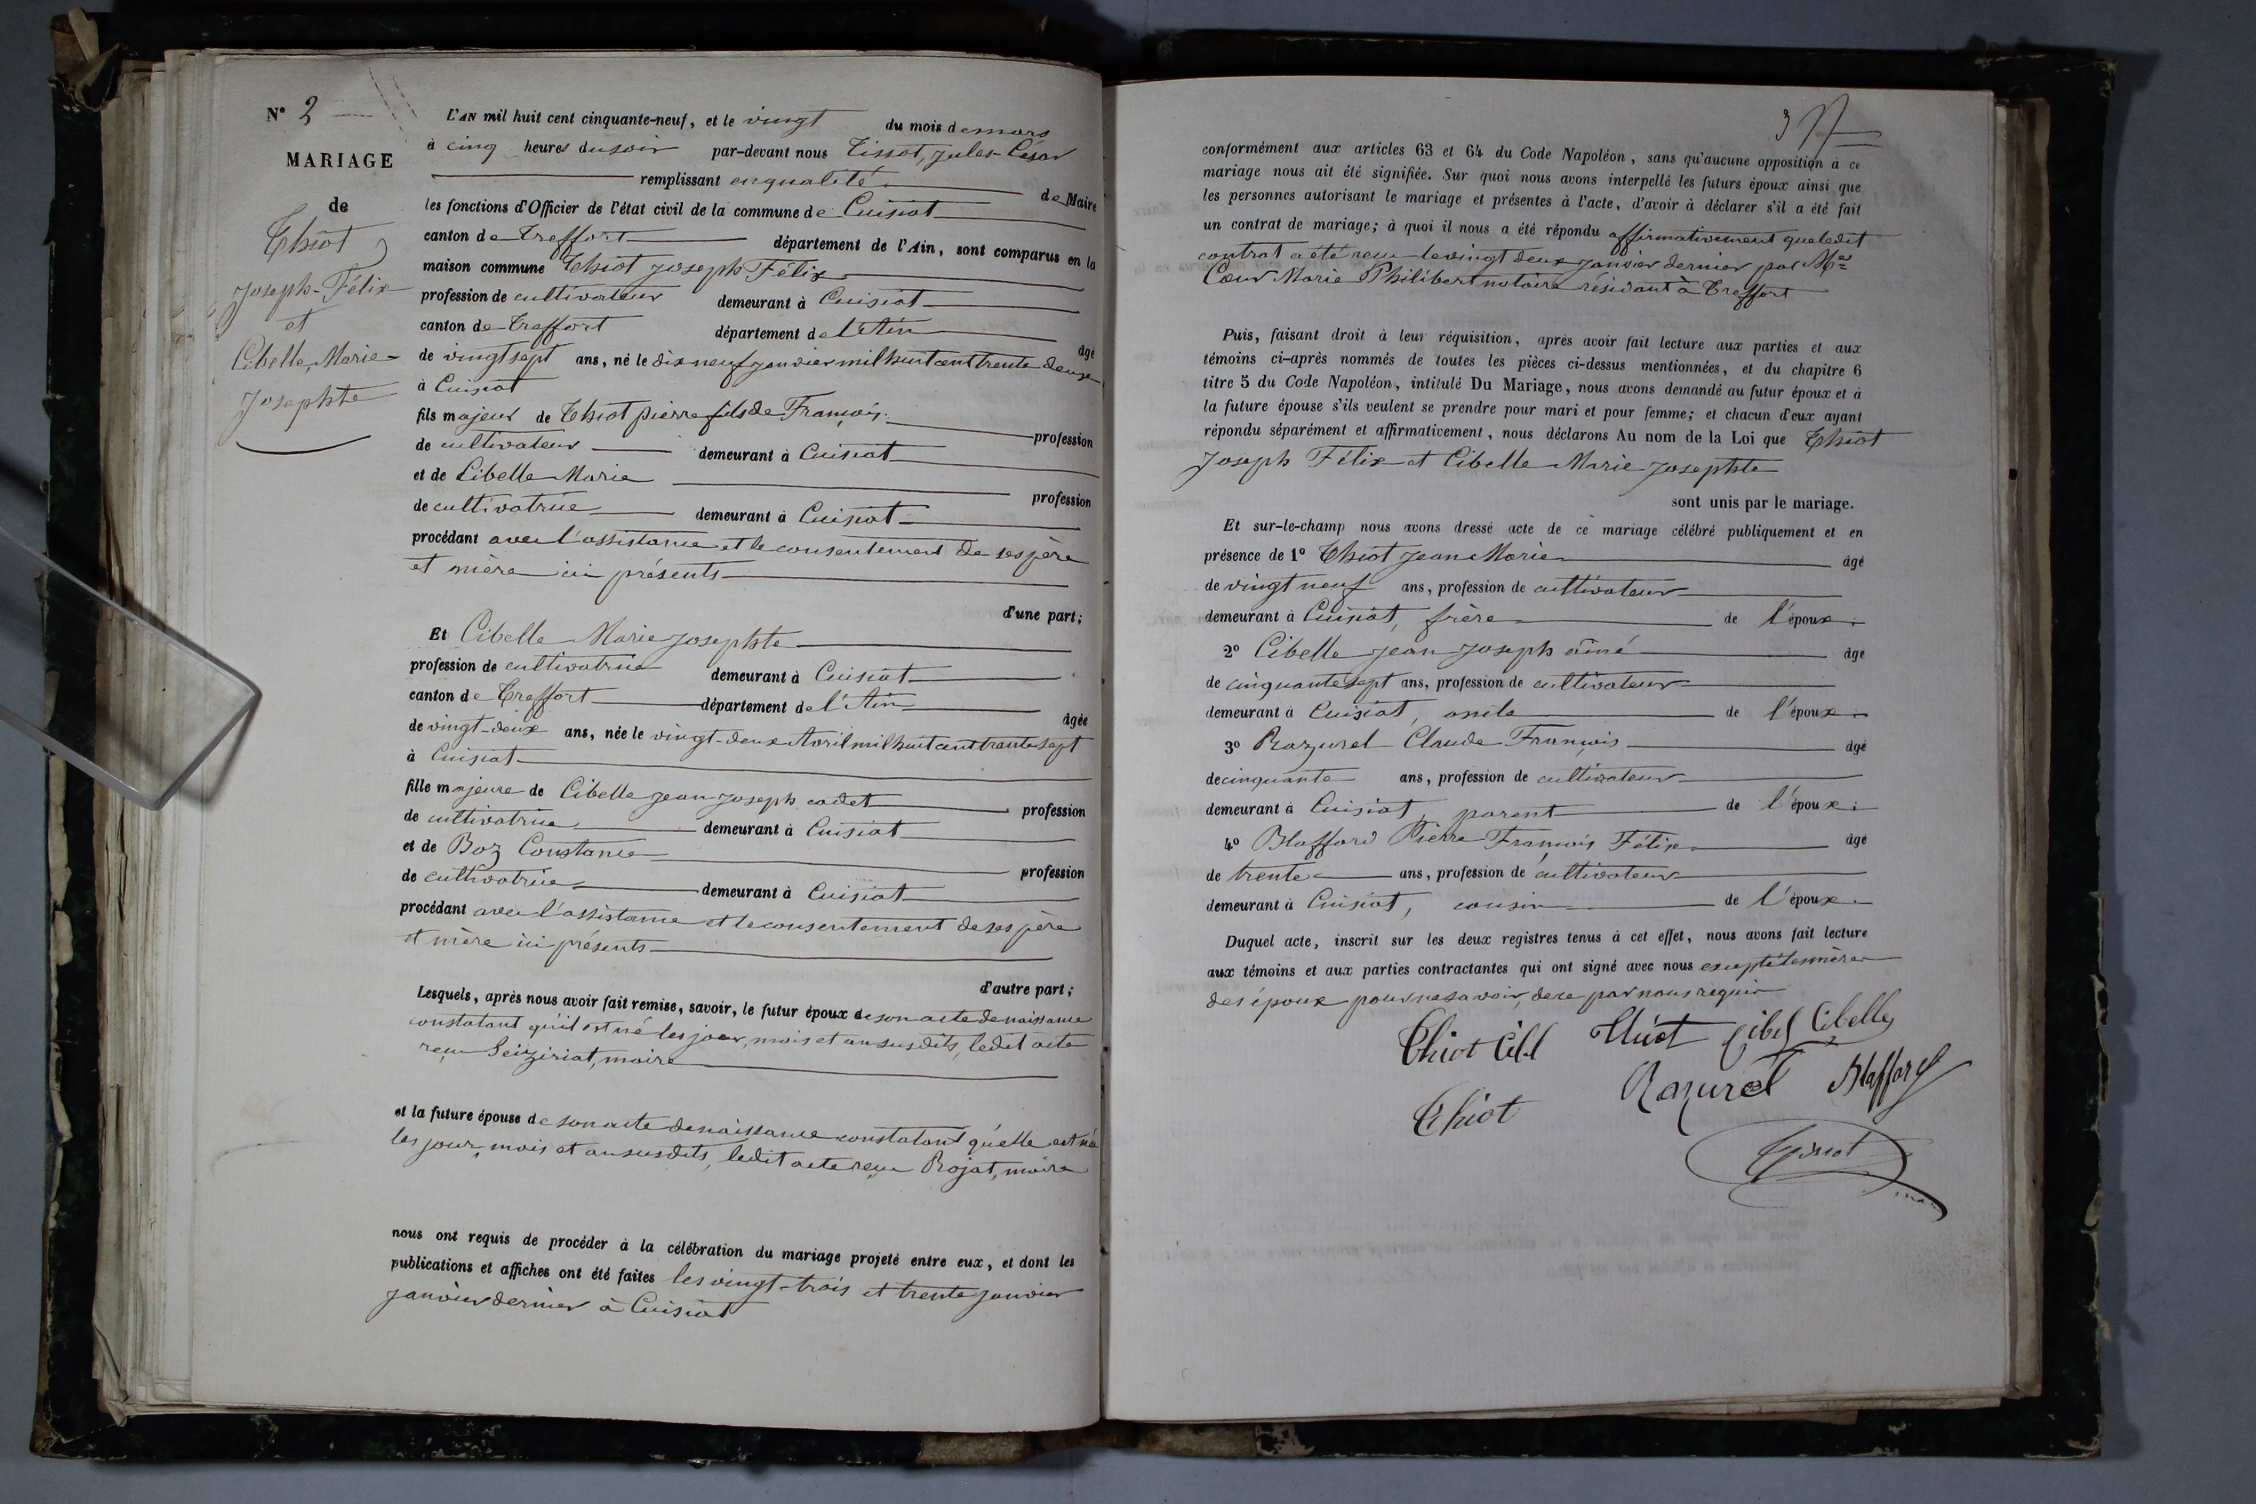 N° 2
MARIAGE
de
Thiot
Joseph-Félix
et
Cibelle, Marie-
Josephte
L'AN mil huit cent cinquante-neuf, et le vingt du mois de mars
à cinq heures du soir par-devant nous Tissot, Jules-César
remplissant en qualité de Maire
les fonctions d'Officier de l'état civil de la commune de Cuisiat
canton de Treffort département de l'Ain, sont comparus en la
maison commune Thiot Joseph Félix
profession de cultivateur demeurant à Cuisiat
canton de Treffort département de l'Ain
âgé
de vingt sept ans, né le dix neuf janvier mil huit cent trente deux
à Cuisiat
fils majeur de Thiot pierre fils de François
profession
de cultivateur demeurant à Cuisiat
et de Cibelle Marie
profession
de cultivatrice demeurant à Cuisiat
procédant avec l'assistance et le consentement de ses père
et mère ici présents
d'une part;
Et Cibelle Marie Josephte
profession de cultivatrice demeurant à Cuisiat
canton de Treffort département de l'Ain
âgée
de vingt-deux ans, née le vingt-deux Avril mil huit cent trente sept
à Cuisiat
fille majeure de Cibelle Jean Joseph cadet
profession
de cultivatrice demeurant à Cuisiat
et de Boz Constance
profession
de cultivatrice demeurant à Cuisiat
procédant avec l'assistance et le consentement de ses père
et mère ici présents
d'autre part;
Lesquels, après nous avoir fait remise, savoir, le futur époux de son acte de naissance
constatant qu'il est né les jour, mois et an susdits, ledit acte
reçu Seiziriat, maire
et la future épouse de son acte de naissance constatant qu'elle est née
les jour, mois et an susdits, ledit acte reçu Rojat, maire
nous ont requis de procéder à la célébration du mariage projeté entre eux, et dont les
publications et affiches ont été faites les vingt-trois et trente janvier
janvier dernier à Cuisiat
3
conformément aux articles 63 et 64 du Code Napoléon, sans qu'aucune opposition à ce
mariage nous ait été signifiée. Sur quoi nous avons interpellé les futurs époux ainsi que
les personnes autorisant le mariage et présentes à l'acte, d'avoir à déclarer s'il a été fait
un contrat de mariage; à quoi il nous a été répondu affirmativement que ledit
contrat a été reçu le vingt deux janvier dernier par Me
Cœur Marie Philibert notaire résidant à Treffort
Puis, faisant droit à leur réquisition, après avoir fait lecture aux parties et aux
témoins ci-après nommés de toutes les pièces ci-dessus mentionnées, et du chapitre 6
titre 5 du Code Napoléon, intitulé Du Mariage, nous avons demandé au futur époux et à
la future épouse s'ils veulent se prendre pour mari et pour femme; et chacun d'eux ayant
répondu séparément et affirmativement, nous déclarons Au nom de la Loi que Thiot
Joseph Félix et Cibelle Marie Josephte
sont unis par le mariage.
Et sur-le-champ nous avons dressé acte de ce mariage célébré publiquement et en
présence de 1° Thiot Jean Marie âgé
de vingt neuf ans, profession de cultivateur
demeurant à Cuisiat, frère de l'époux.
2° Cibelle Jean Joseph aîné âgé
de cinquante sept ans, profession de cultivateur
demeurant à Cuisiat, oncle de l'époux.
3° Razurel Claude François âgé
de cinquante ans, profession de cultivateur
demeurant à Cuisiat, parent de l'époux.
4° Blaffard Pierre François Félix âgé
de trente ans, profession de cultivateur
demeurant à Cuisiat, cousin de l'époux.
Duquel acte, inscrit sur les deux registres tenus à cet effet, nous avons fait lecture
aux témoins et aux parties contractantes qui ont signé avec nous excepté les mères
des époux pour ne savoir, de ce par nous requis
Thiot Cibel Thiot Cibel Cibelle
Razurel Blaffard
Thiot
Tissot